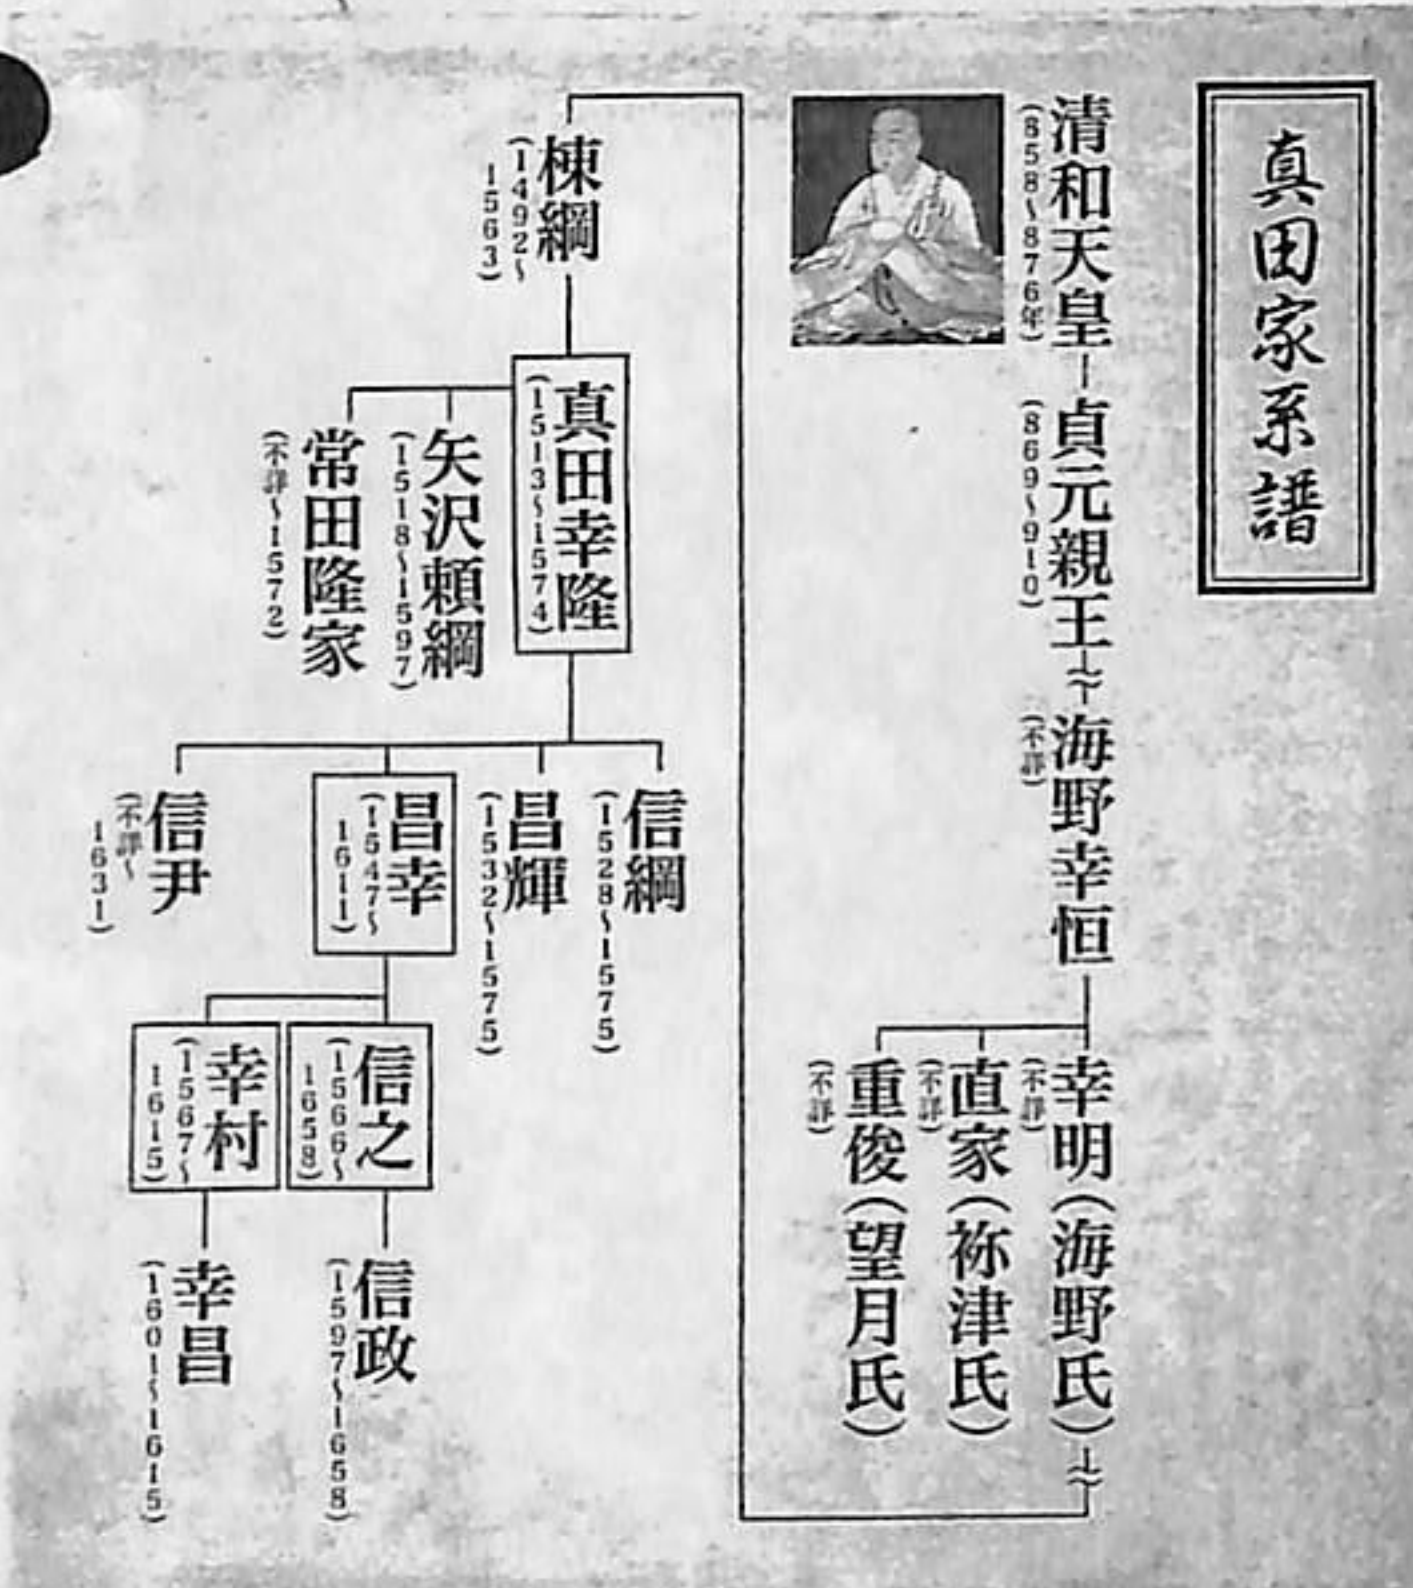 真田家系譜
清和天皇
(858~876年)
貞元親王
(869~910)
海野幸恒
(不詳)
幸明(海野氏)
(不詳)
直家(祢津氏)
(不詳)
重俊(望月氏)
(不詳)
棟綱
(1492~
1563)
真田幸隆
(1513~1574)
矢沢頼綱
(1518~1597)
常田隆家
(不詳~1572)
信綱
(1528~1575)
昌輝
(1532~1575)
昌幸
(1547~
1611)
信尹
(不詳~
1631)
信之
(1566~
1658)
幸村
(1567~
1615)
信政
(1597~1658)
幸昌
(1601~1615)